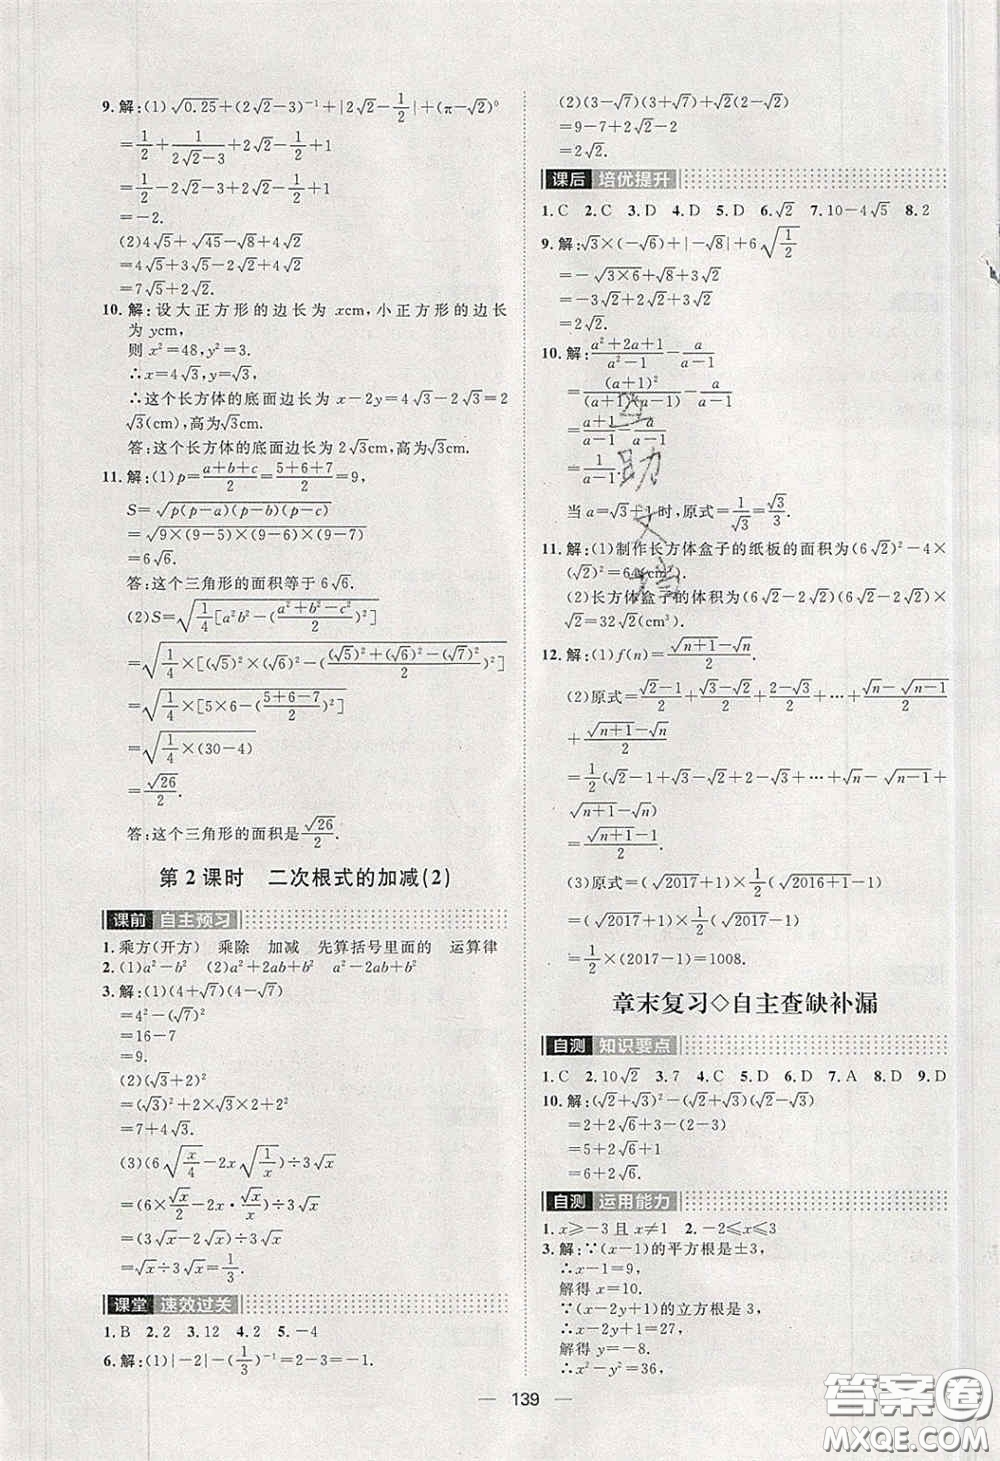 9.解:(1)√0.25+(2√2-3)⁻¹+|2√2-1/2|+(π-√2)⁰
=1/2+1/(2√2-3)+2√2-1/2+1
=1/2-2√2-3+2√2-1/2+1
=-2.
(2)4√5+√45-√8+4√2
=4√5+3√5-2√2+4√2
=7√5+2√2.
10.解:设大正方形的边长为xcm,小正方形的边长
为ycm,
则x²=48,y²=3.
∴x=4√3,y=√3.
∴这个长方体的底面边长为x-2y=4√3-2√3=2
√3(cm),高为√3cm.
答:这个长方体的底面边长为2√3cm,高为√3cm.
11.解:(1)p=(a+b+c)/2=(5+6+7)/2=9,
S=√(p(p-a)(p-b)(p-c))
=√(9×(9-5)×(9-6)×(9-7))
=6√6.
答:这个三角形的面积等于6√6.
(2)S=√(1/4[a²b²-((a²+b²-c²)/2)²])
=√(1/4×[(√5)²×(√6)²-(((√5)²+(√6)²-(√7)²)/2)²])
=√(1/4×[5×6-((5+6-7)/2)²])
=√(1/4×(30-4))
=√26/2.
答:这个三角形的面积是√26/2.
第2课时 二次根式的加减(2)
课前 自主预习
1.乘方(开方) 乘除 加减 先算括号里面的 运算律
2.(1)a²-b² (2)a²+2ab+b² a²-2ab+b²
3.解:(1)(4+√7)(4-√7)
=4²-(√7)²
=16-7
=9.
(2)(√3+2)²
=(√3)²+2×√3×2+2²
=7+4√3.
(3)(6√(x/4)-2x√(1/x))÷3√x
=(6×√x/2-2x·√x/x)÷3√x
=(3√x-2√x)÷3√x
=√x÷3√x=1/3.
课堂 速效过关
1.B 2.2 3.12 4.2 5.-4
6.解:(1)|-2|-(1/3)⁻¹=2-3=-1.
(2)(3-√7)(3+√7)+√2(2-√2)
=9-7+2√2-2
=2√2.
课后 培优提升
1.C 2.C 3.D 4.D 5.D 6.√2 7.10-4√5 8.2
9.解:√3×(-√6)+|-√8|+6√(1/2)
=-√(3×6)+√8+3√2
=-3√2+2√2+3√2
=2√2.
10.解:(a²+2a+1)/(a²-1)-a/(a-1)
=(a+1)²/((a+1)(a-1))-a/(a-1)
=(a+1)/(a-1)-a/(a-1)
=1/(a-1).
当a=√3+1时,原式=1/√3=√3/3.
11.解:(1)制作长方体盒子的纸板的面积为(6√2)²-4×
(√2)²=64(cm²).
(2)长方体盒子的体积为(6√2-2√2)(6√2-2√2)×
√2=32√2(cm³).
12.解:(1)f(n)=(√(n+1)-√n)/2.
(2)原式=(√2-1)/2+(√3-√2)/2+(2-√3)/2+…+(√n-√(n-1))/2
+(√(n+1)-√n)/2
=1/2(√2-1+√3-√2+2-√3+…+√n-√(n-1)+
√(n+1)-√n)
=(√(n+1)-1)/2.
(3)原式=(√2017+1)×1/2(√(2016+1)-1)
=(√2017+1)×1/2(√2017-1)
=1/2×(2017-1)=1008.
章末复习◇自主查缺补漏
自测 知识要点
1.C 2.10√2 3.7 4.C 5.D 6.D 7.A 8.D 9.D
10.解:(√2+√3)²-(√2+√3)(√2-√3)
=2+2√6+3-(2-3)
=5+2√6+1
=6+2√6.
自测 运用能力
1.x≥-3且x≠1 2.-2≤x≤3
3.解:∵(x-1)的平方根是±3,
∴x-1=9,
解得x=10.
∵(x-2y+1)的立方根是3,
∴x-2y+1=27,
解得y=-8.
∴x²-y²=36,
139
答案圈
MXQE.COM